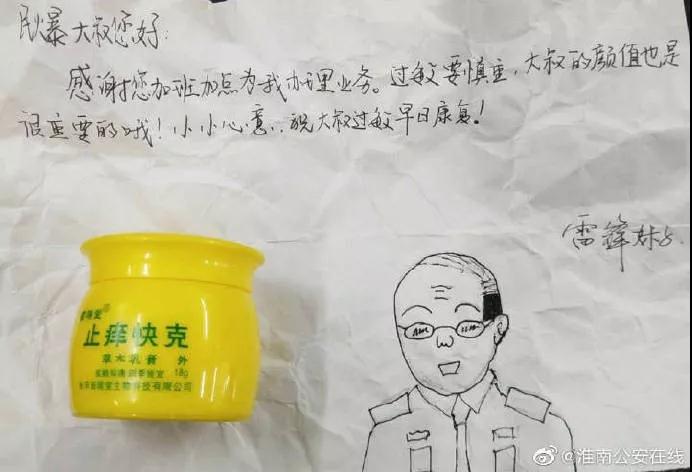 民爆大叔您好:
感谢您加班加点为我办理业务。过敏要慎重,大叔的颜值也是
很重要的哦!小小心意,祝大叔过敏早日康复!
雷锋妹
止痒快克
草本乳膏 外
18g
@淮南公安在线